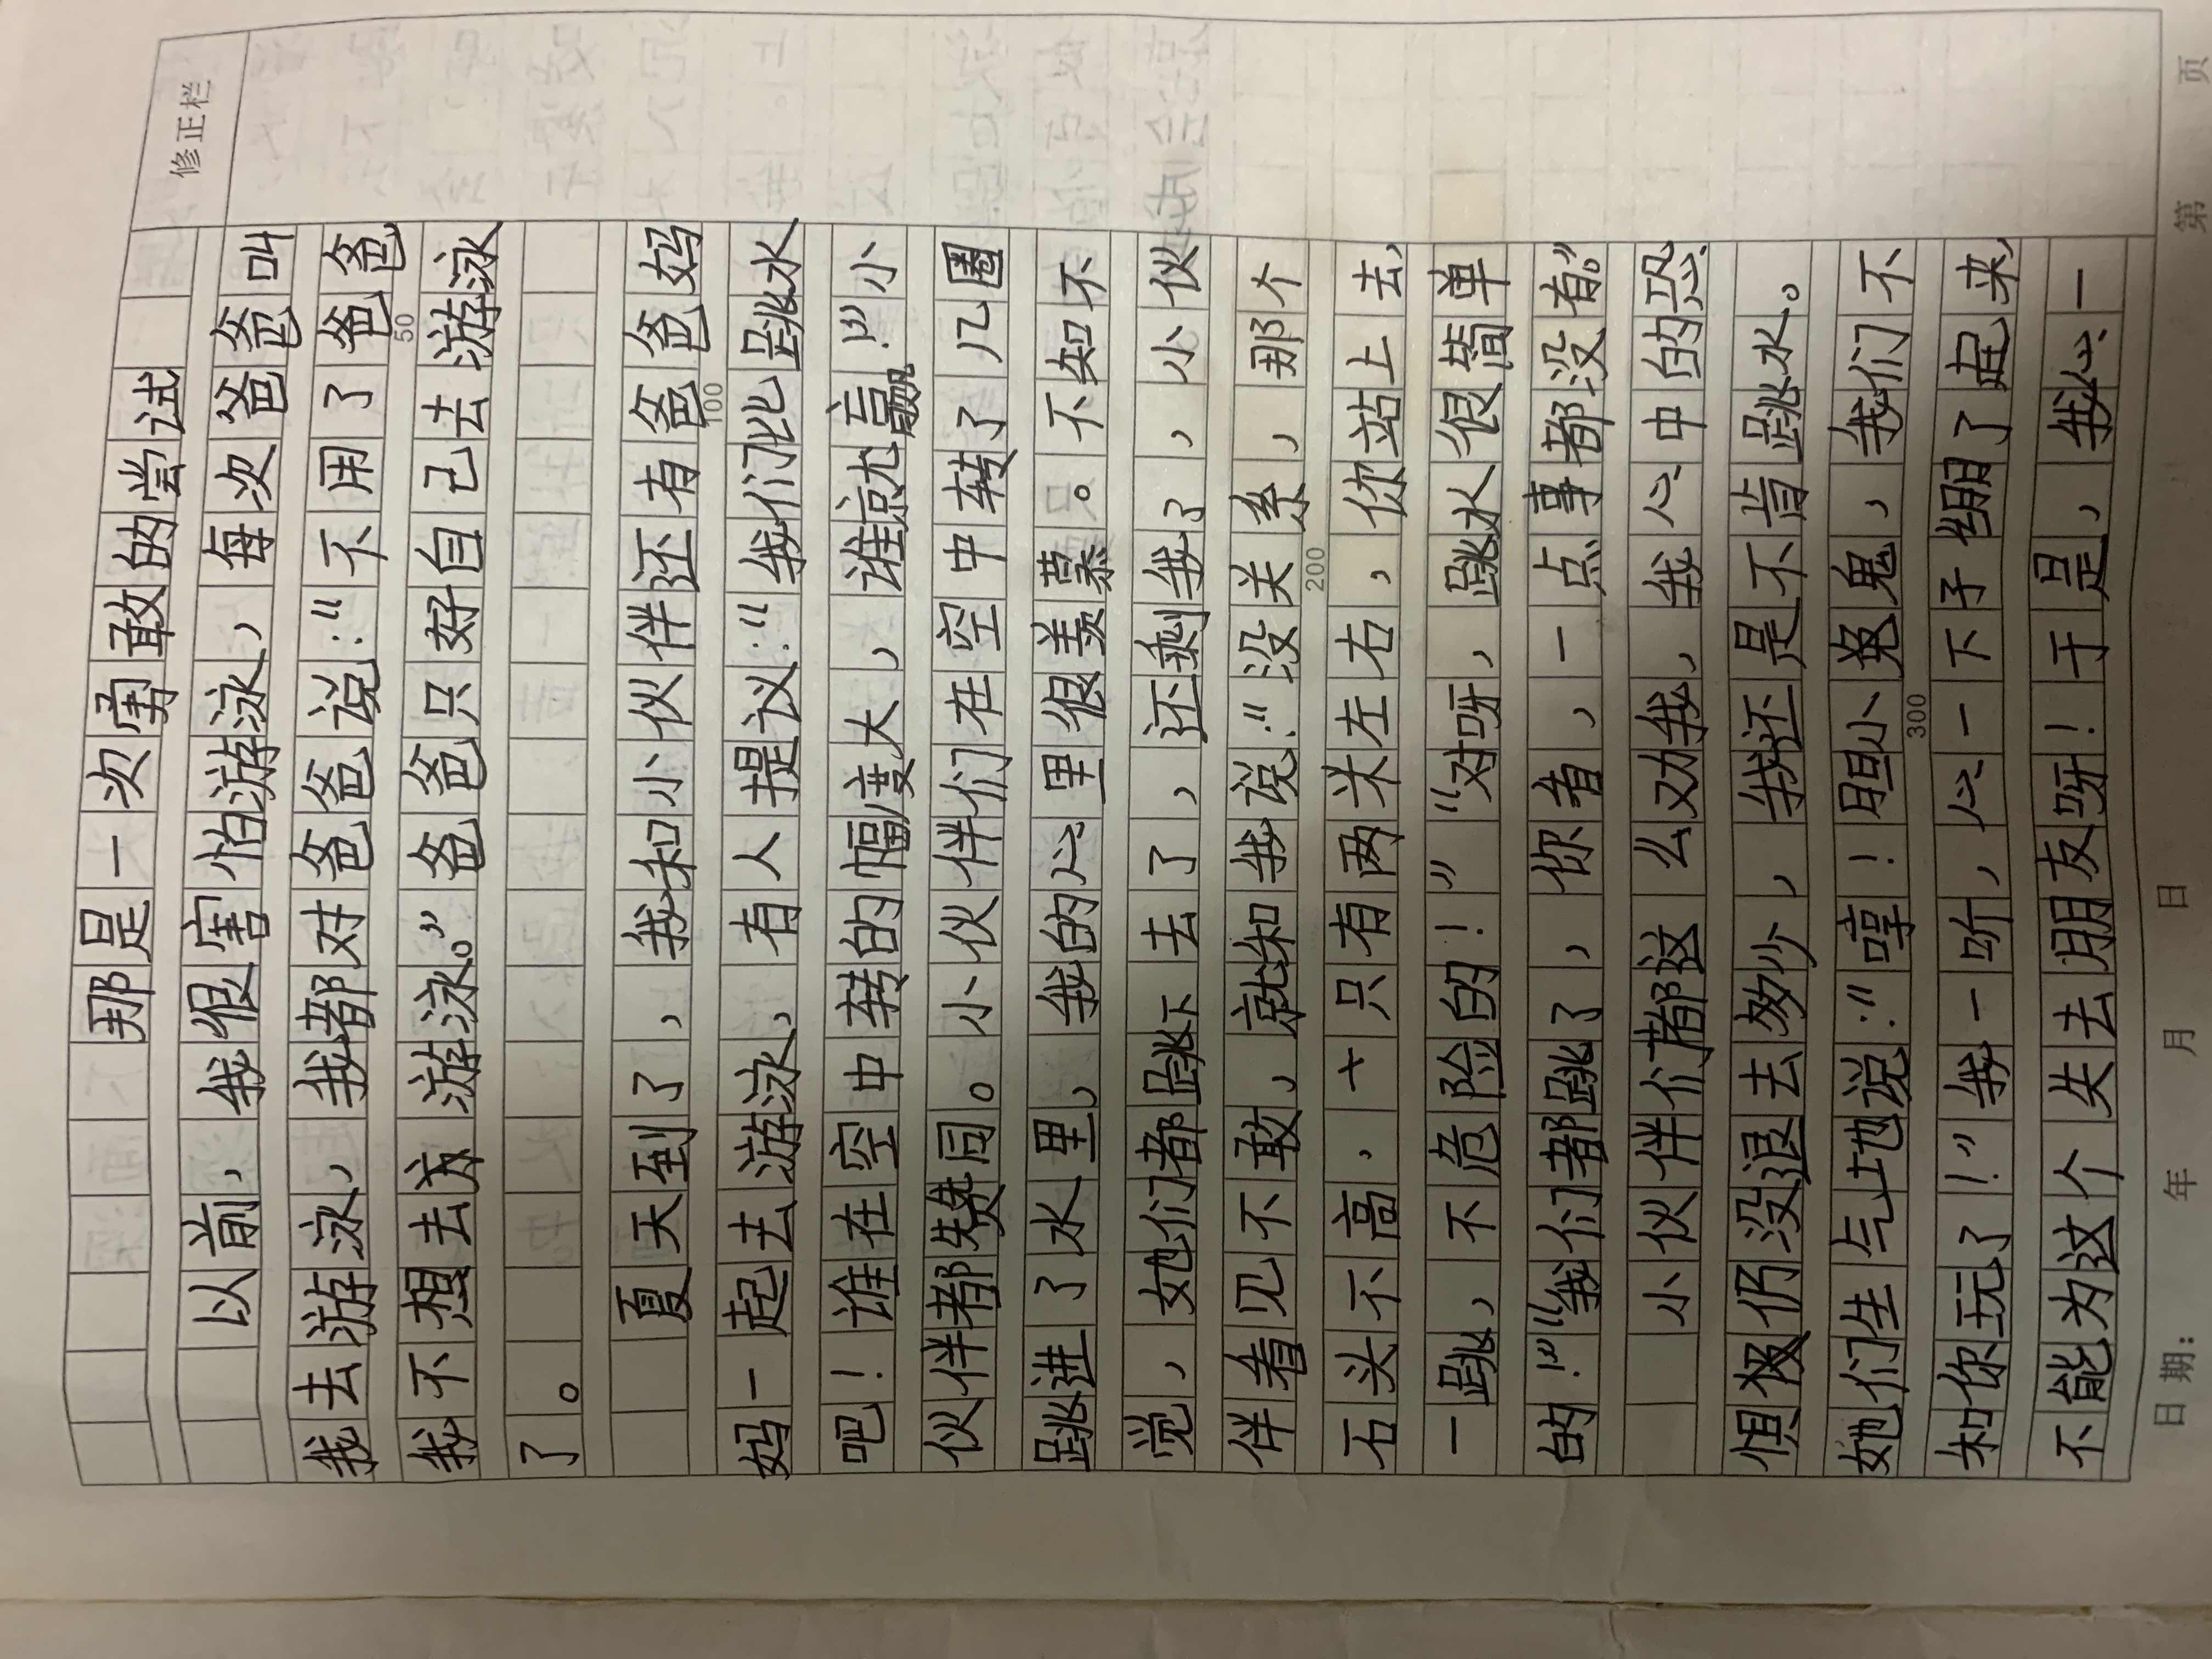 修正栏
那是一次勇敢的尝试
以前，我很害怕游泳，每次爸爸叫
我去游泳，我都对爸爸说：“不用了爸爸
50
我不想去游泳。”爸爸只好自己去游泳
了。
夏天到了，我和小伙伴还有爸爸妈
100
妈一起去游泳，有人提议：“我们比跳水
吧！谁在空中转的幅度大，谁就赢！”小
伙伴都赞同。小伙伴们在空中转了几圈
跳进了水里，我的心里很羡慕。不知不
觉，她们都跳下去了，还剩我了，小伙
伴看见不敢，就和我说：“没关系，那个
200
石头不高，十只有两米左右，你站上去，
一跳，不危险的！”“对呀，跳水很简单
的！”“我们都跳了，你看，一点事都没有。”
小伙伴们都这么劝我，我心中的恐
惧极仍没退去多少，我还是不肯跳水。
她们生气地说：“哼！胆小兔鬼，我们不
300
和你玩了！”我一听，心一下子绷了起来
不能为这个失去朋友呀！于是，我心一
日期： 年 月 日
第 页